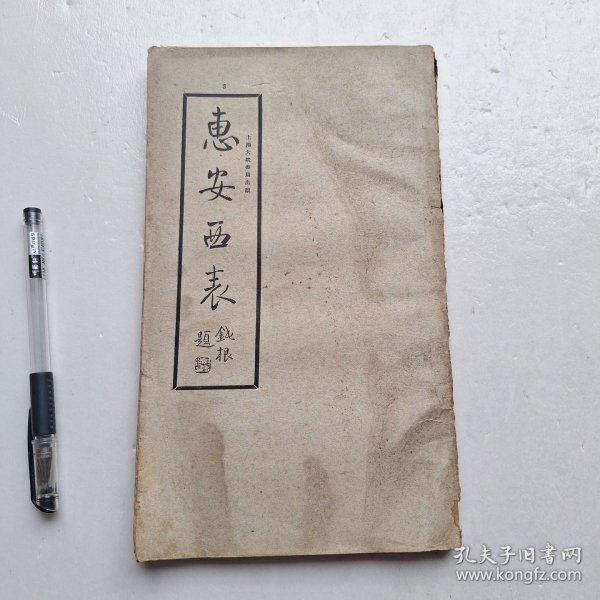 惠安西表
鐵根
題
上海大眾書局出版
孔夫子旧书网
www.kongfz.com